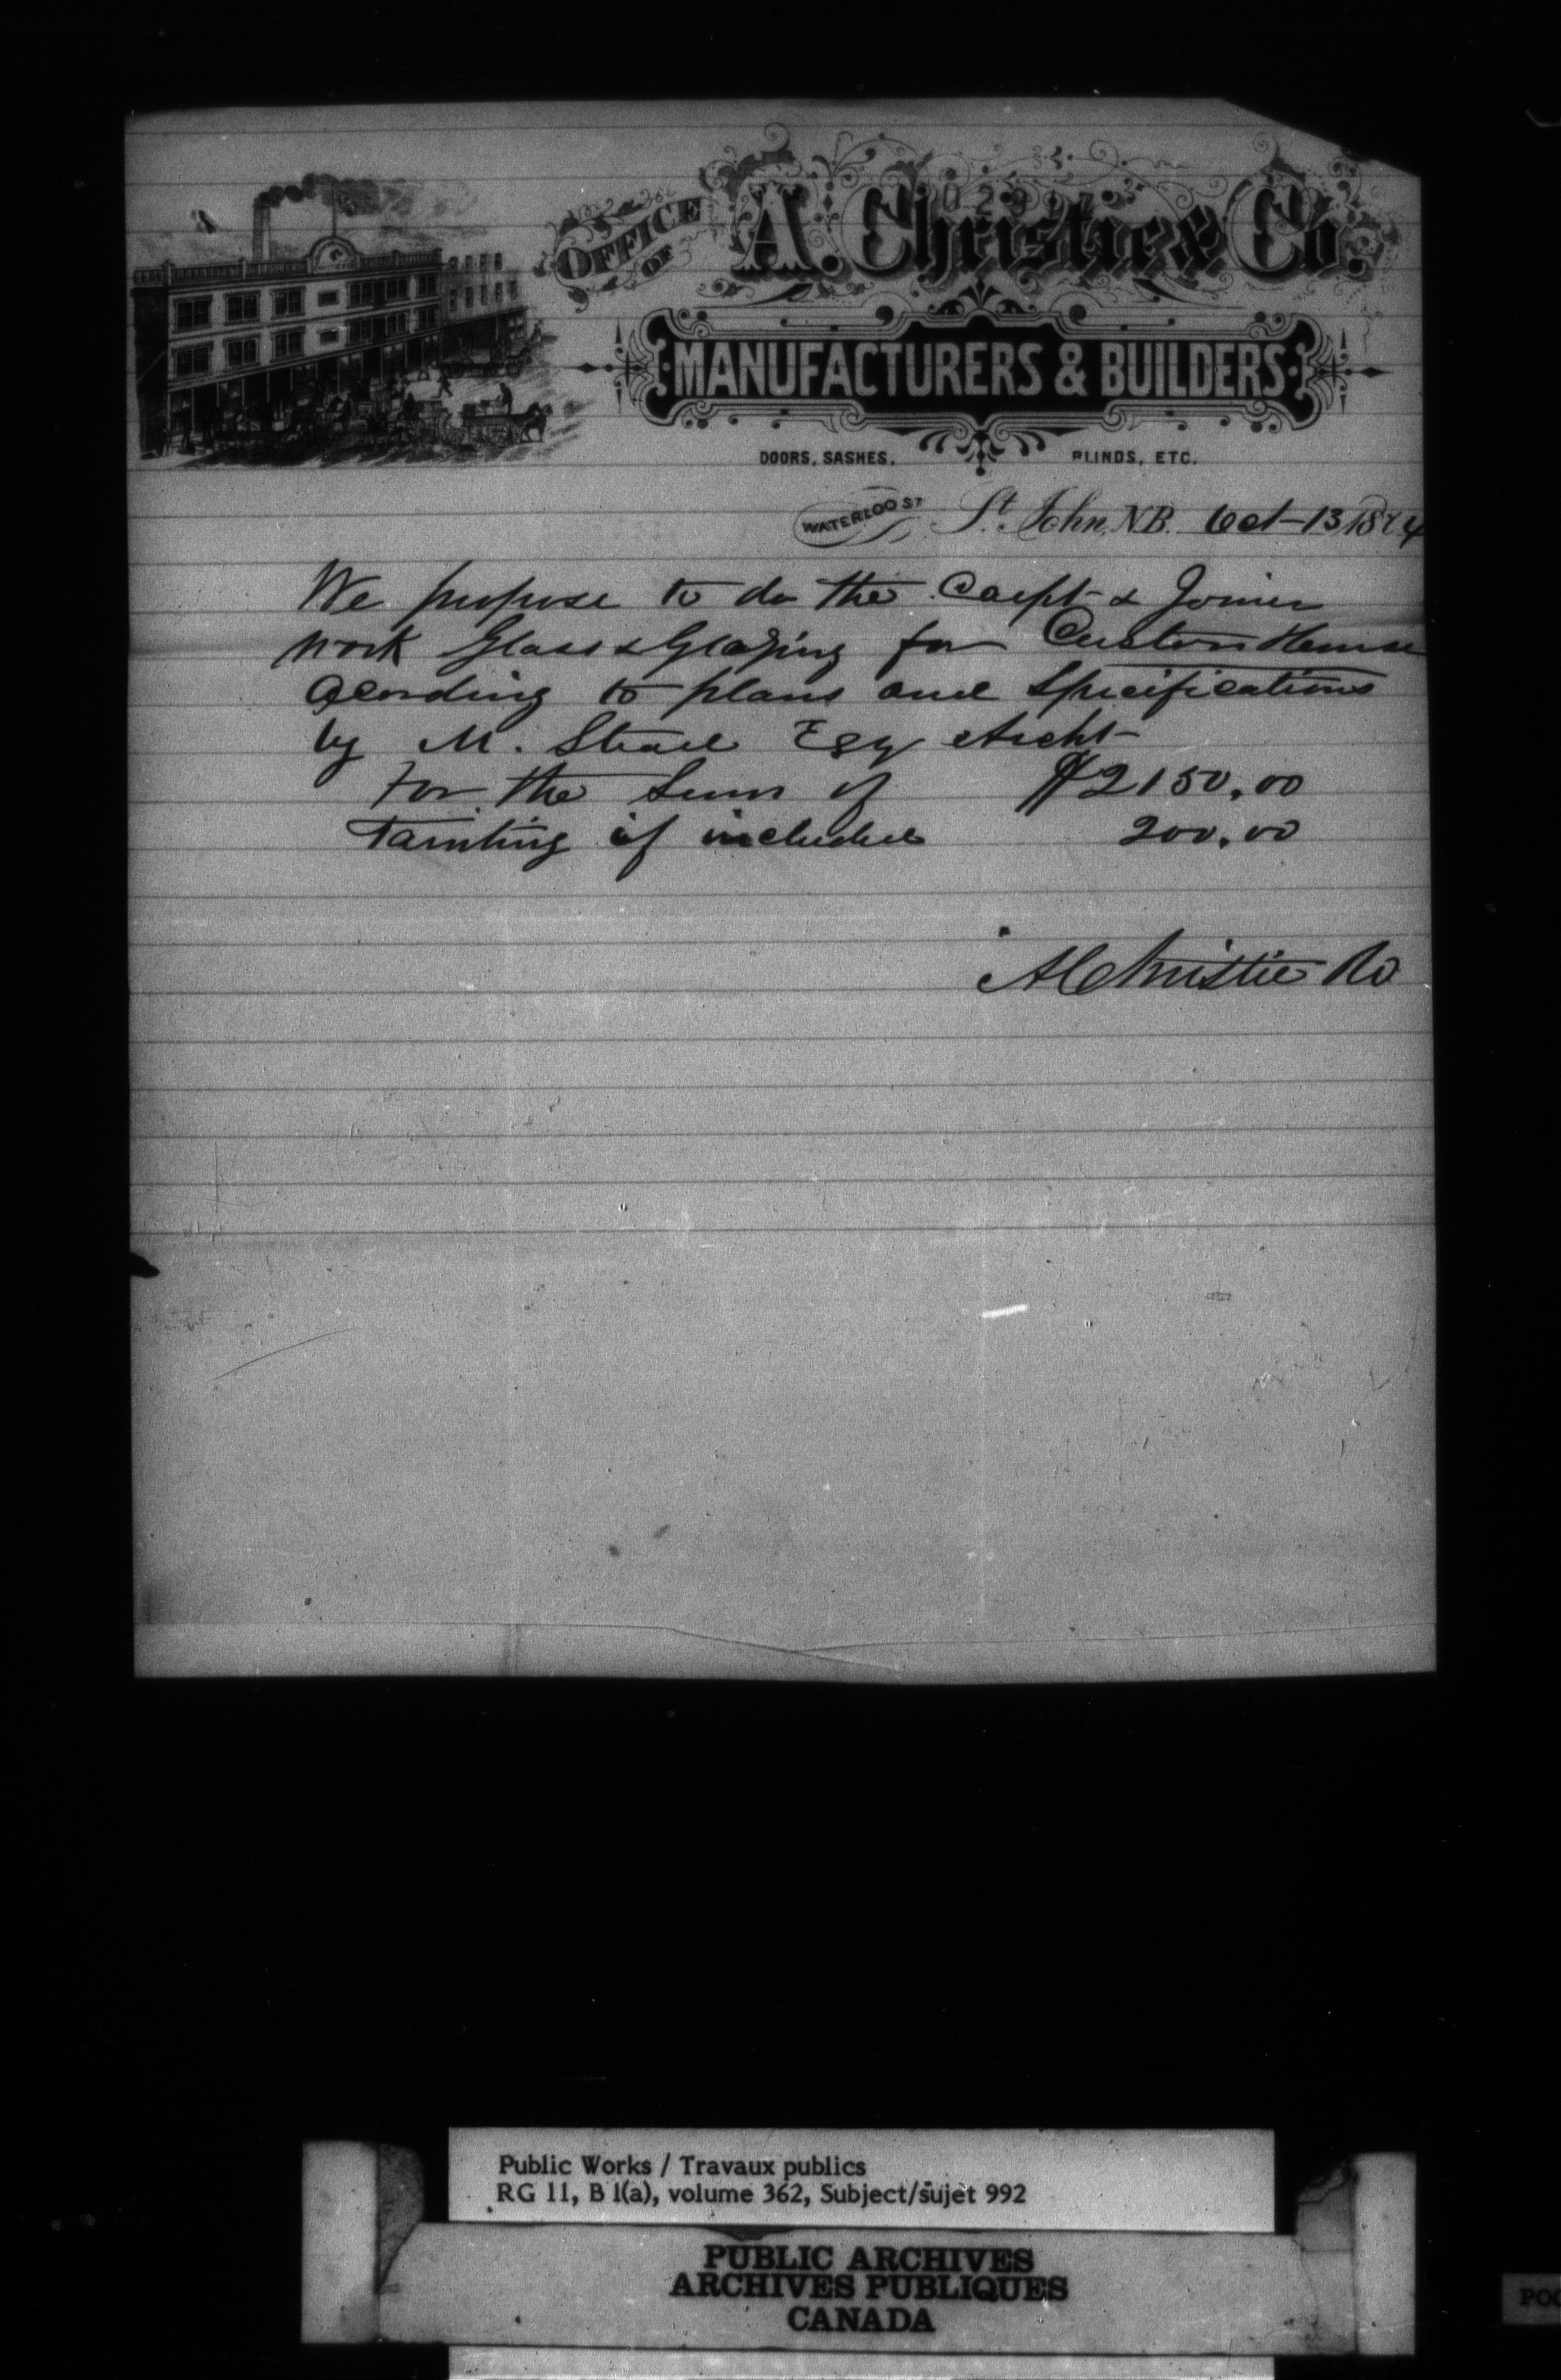 OFFICE OF A. Christie & Co.
MANUFACTURERS & BUILDERS
DOORS, SASHES, BLINDS, ETC.
WATERLOO ST St. John, N.B. Oct-13 1874
We propose to do the Carpt & Joiner
work Glass & Glazing for Custom House
Acording to plans and Specifications
by M. Stead Esq Archt
For the Sum of $2150.00
Painting if included 200.00
A Christie Co
Public Works / Travaux publics
RG 11, B 1(a), volume 362, Subject/sujet 992
PUBLIC ARCHIVES
ARCHIVES PUBLIQUES
CANADA